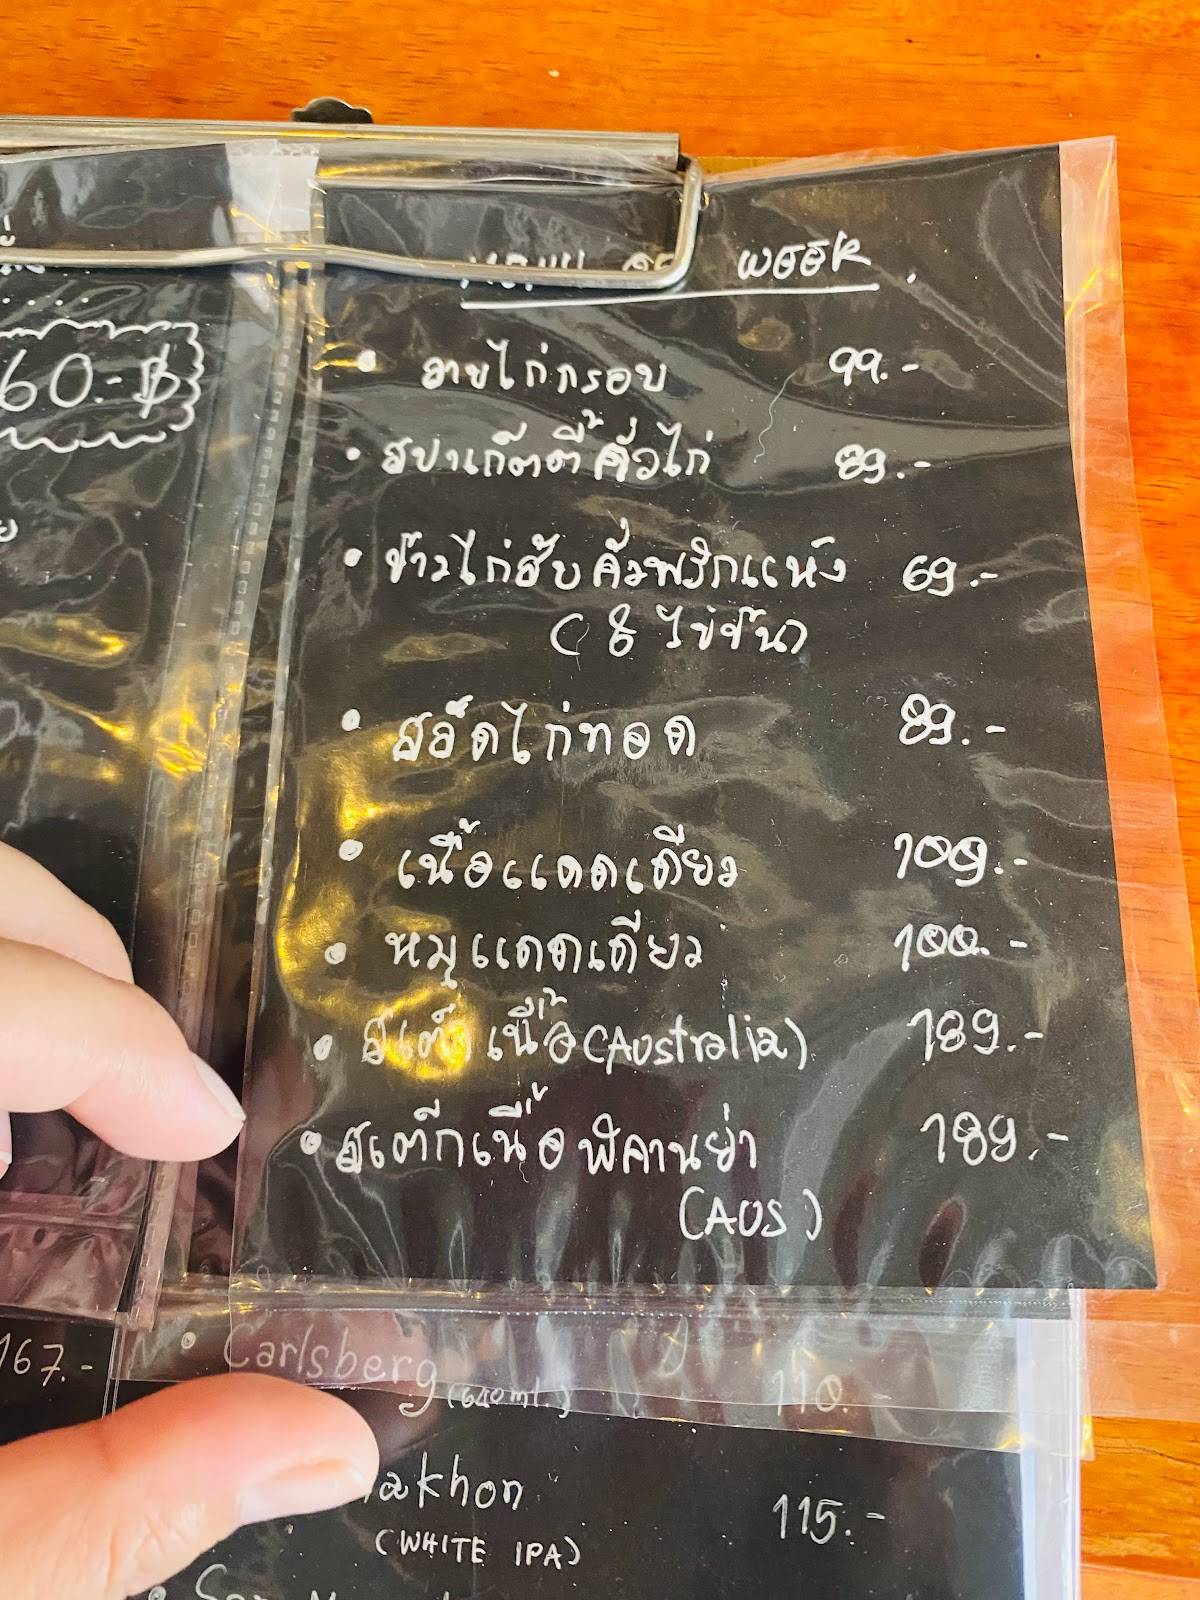 60.-฿
MENU OF WEEK.
• ลาบไก่กรอบ 99.-
• สปาเก็ตตี้คั่วไก่ 89.-
• ข้าวไก่สับคั่วพริกแห้ง 69.-
( & ไข่ข้น)
• สลัดไก่ทอด 89.-
• เนื้อแดดเดียว 109.-
• หมูแดดเดียว 100.-
• สเต๊กเนื้อ (AUStralia) 189.-
• สเต๊กเนื้อพิคานย่า 189.-
(AUS)
167.-
• Carlsberg (640ml.) 110.-
akhon 115.-
(WHITE IPA)